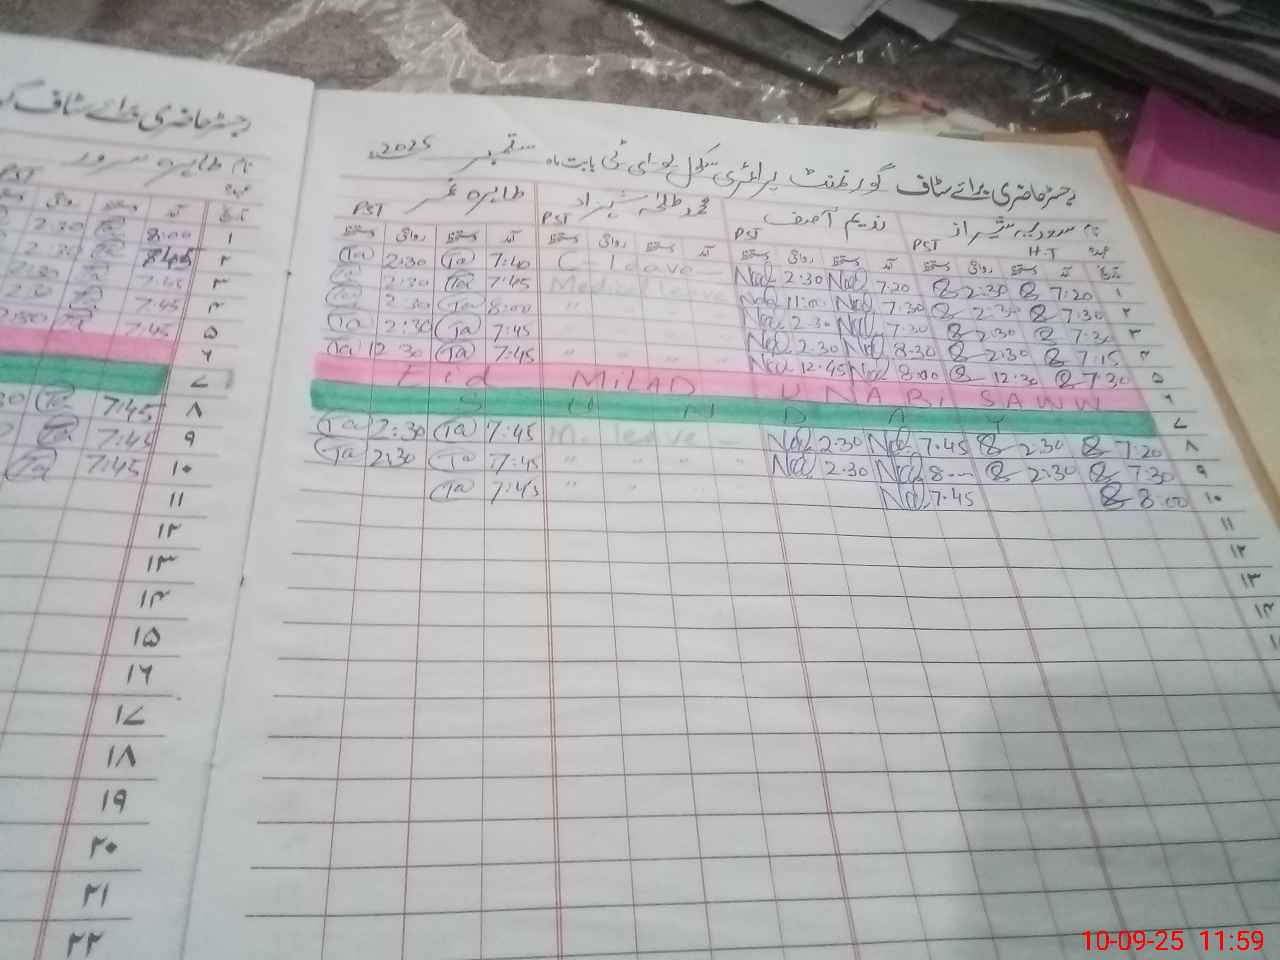 رجسٹر حاضری برائے سٹاف
نام طاہرہ سرور
PST
تاریخ آمد دستخط روانگی
۱ 8:00 Ta 2:30
۲ 8:45 Ta 2:30
۳ 7:45 Ta 2:30
۴ 7:45 Ta 2:30
۵ 7:45 Ta
۶
۷
۸ 7:45 Ta
۹ 7:45 Ta
۱۰ 7:45 Ta
۱۱
۱۲
۱۳
۱۴
۱۵
۱۶
۱۷
۱۸
۱۹
۲۰
۲۱
۲۲
رجسٹر حاضری برائے سٹاف گورنمنٹ پرائمری سکول بابت ماہ ستمبر 2025
نام شیراز ندیم آصف محمد طلحہ شہزاد طاہرہ
عہدہ H.T PST PST PST PST
تاریخ آمد دستخط روانگی دستخط آمد دستخط روانگی دستخط آمد دستخط روانگی دستخط آمد دستخط روانگی دستخط
۱ 7:20 2:30 7:20 Nad 2:30 Nad C- leave 7:40 Ta 2:30 Ta
۲ 7:30 2:30 7:30 Nad 11:00 Nad Medical leave 7:45 Ta 2:30 Ta
۳ 7:30 2:30 7:30 Nad 2:30 Nad " " " " 8:00 Ta 2:30 Ta
۴ 7:15 2:30 8:30 Nad 2:30 Nad " " " " 7:45 Ta 2:30 Ta
۵ 7:30 12:30 8:00 Nad 12:45 Nad " " " " 7:45 Ta 12:30 Ta
۶ Eid MILAD U NABI SAWW
۷ SUNDAY
۸ 7:20 2:30 7:45 Nad 2:30 Nad M. leave 7:45 Ta 2:30 Ta
۹ 7:30 2:30 8 Nad 2:30 Nad " " " " 7:45 Ta 2:30 Ta
۱۰ 8:00 7:45 Nad " " " " 7:45 Ta
۱۱
۱۲
۱۳
۱۴
10-09-25 11:59